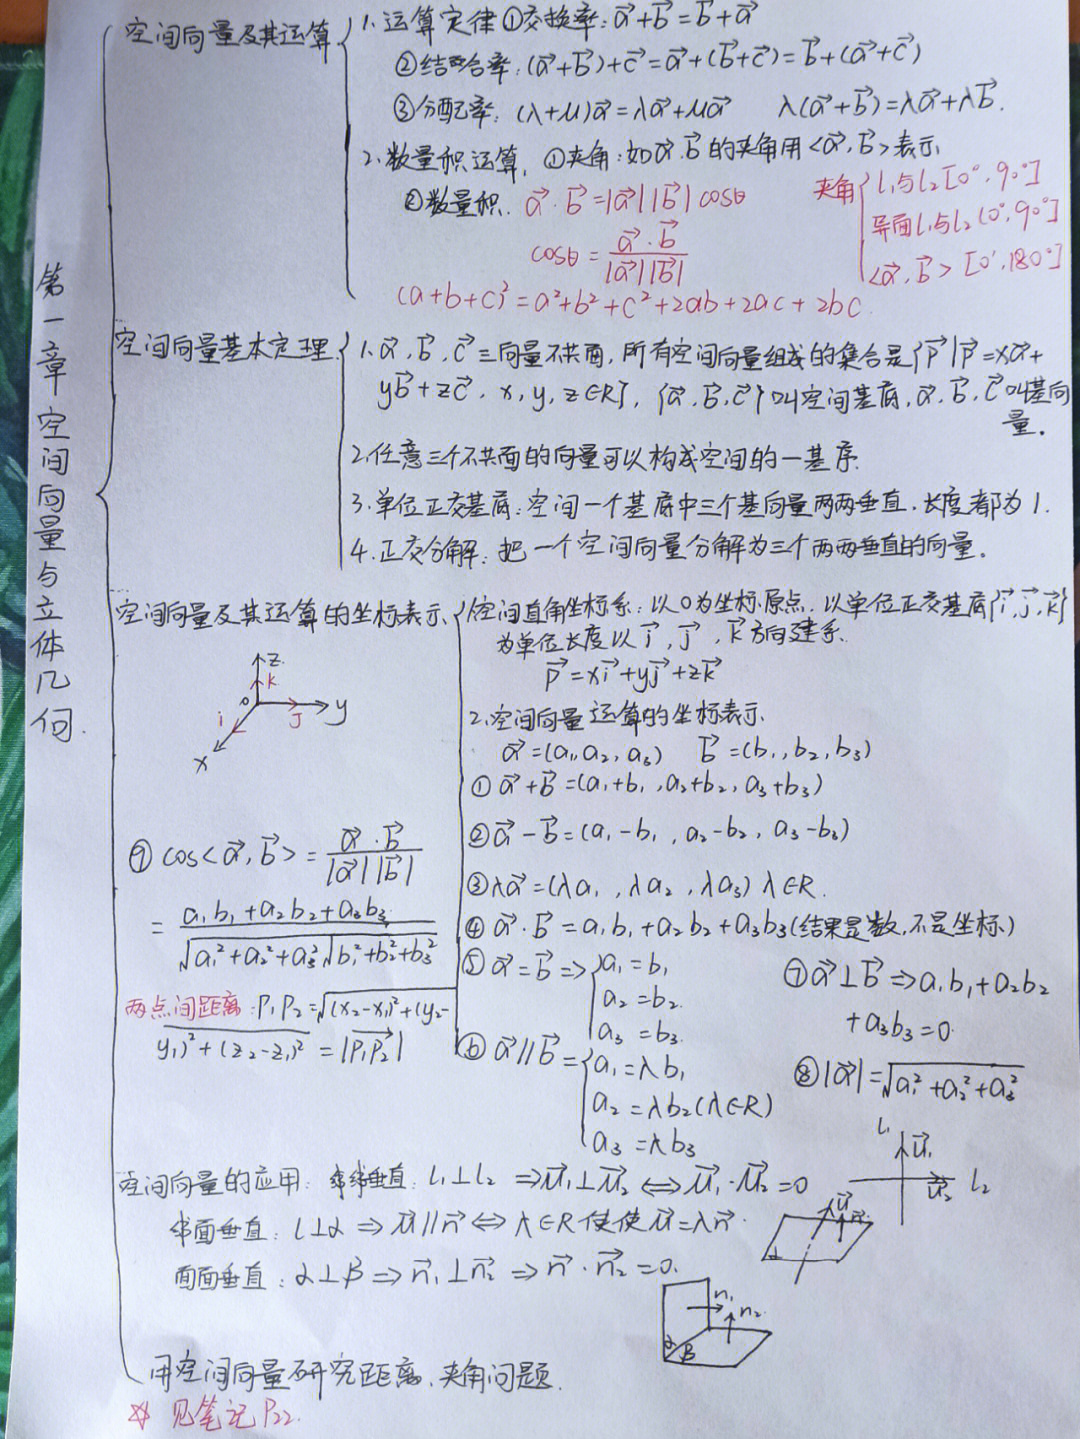 第一章空间向量与立体几何.
空间向量及其运算
1. 运算定律①交换率: a⃗+b⃗=b⃗+a⃗
②结合率: (a⃗+b⃗)+c⃗=a⃗+(b⃗+c⃗)=b⃗+(a⃗+c⃗)
③分配率: (λ+μ)a⃗=λa⃗+μa⃗ λ(a⃗+b⃗)=λa⃗+λb⃗.
2. 数量积运算, ①夹角: 如a⃗.b⃗的夹角用<a⃗,b⃗>表示
②数量积. a⃗·b⃗=|a⃗||b⃗|cosθ
cosθ=a⃗·b⃗/|a⃗||b⃗|
夹角{l₁与l₂[0°,90°]
异面l₁与l₂(0°,90°]
<a⃗,b⃗>[0°,180°]
(a+b+c)²=a²+b²+c²+2ab+2ac+2bc
空间向量基本定理
1.a⃗,b⃗,c⃗三向量不共面,所有空间向量组成的集合是{p⃗|p⃗=xa⃗+
yb⃗+zc⃗, x,y,z∈R}, {a⃗,b⃗,c⃗}叫空间基底,a⃗,b⃗,c⃗叫基向
量.
2.任意三个不共面的向量可以构成空间的一基底
3.单位正交基底:空间一个基底中三个基向量两两垂直,长度都为1.
4.正交分解:把一个空间向量分解为三个两两垂直的向量.
空间向量及其运算的坐标表示
1.空间直角坐标系:以O为坐标原点,以单位正交基底{i⃗,j⃗,k⃗}
为单位长度以i⃗,j⃗,k⃗方向建系.
p⃗=xi⃗+yj⃗+zk⃗
z
k
o
i
J
y
x
2.空间向量运算的坐标表示
a⃗=(a₁,a₂,a₃) b⃗=(b₁,b₂,b₃)
①a⃗+b⃗=(a₁+b₁,a₂+b₂,a₃+b₃)
②a⃗-b⃗=(a₁-b₁,a₂-b₂,a₃-b₃)
③λa⃗=(λa₁,λa₂,λa₃)λ∈R.
④a⃗·b⃗=a₁b₁+a₂b₂+a₃b₃(结果是数,不是坐标)
⑤a⃗=b⃗⇒{a₁=b₁
a₂=b₂
a₃=b₃
⑥a⃗//b⃗={a₁=λb₁
a₂=λb₂(λ∈R)
a₃=λb₃
⑦a⃗⊥b⃗⇒a₁b₁+a₂b₂
+a₃b₃=0
⑧|a⃗|=√(a₁²+a₂²+a₃²)
⑨cos<a⃗,b⃗>=a⃗·b⃗/|a⃗||b⃗|
=(a₁b₁+a₂b₂+a₃b₃)/(√(a₁²+a₂²+a₃²)√(b₁²+b₂²+b₃²))
两点间距离:P₁P₂=√(x₂-x₁)²+(y₂-
y₁)²+(z₂-z₁)²=|P₁P₂⃗|
空间向量的应用: 线线垂直: l₁⊥l₂⇒μ⃗₁⊥μ⃗₂⇔μ⃗₁·μ⃗₂=0
线面垂直: l⊥α⇒μ⃗//n⃗⇔λ∈R使使μ⃗=λn⃗.
面面垂直: α⊥β⇒n⃗₁⊥n⃗₂⇒n⃗·n⃗₂=0.
l₁
u⃗₁
u⃗₂
l₂
u⃗
n⃗
α
n₁
n₂
α
β
用空间向量研究距离、夹角问题.
☆ 见笔记P₂₂.